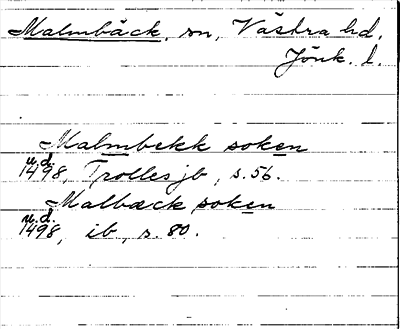 Malmbäck, sn, Västra hd.
Jönk. l.
Malmbekk soken
u.d.
1498, Trolles jb, s. 56.
Malbæck soken
u.d.
1498, ib, s. 80.